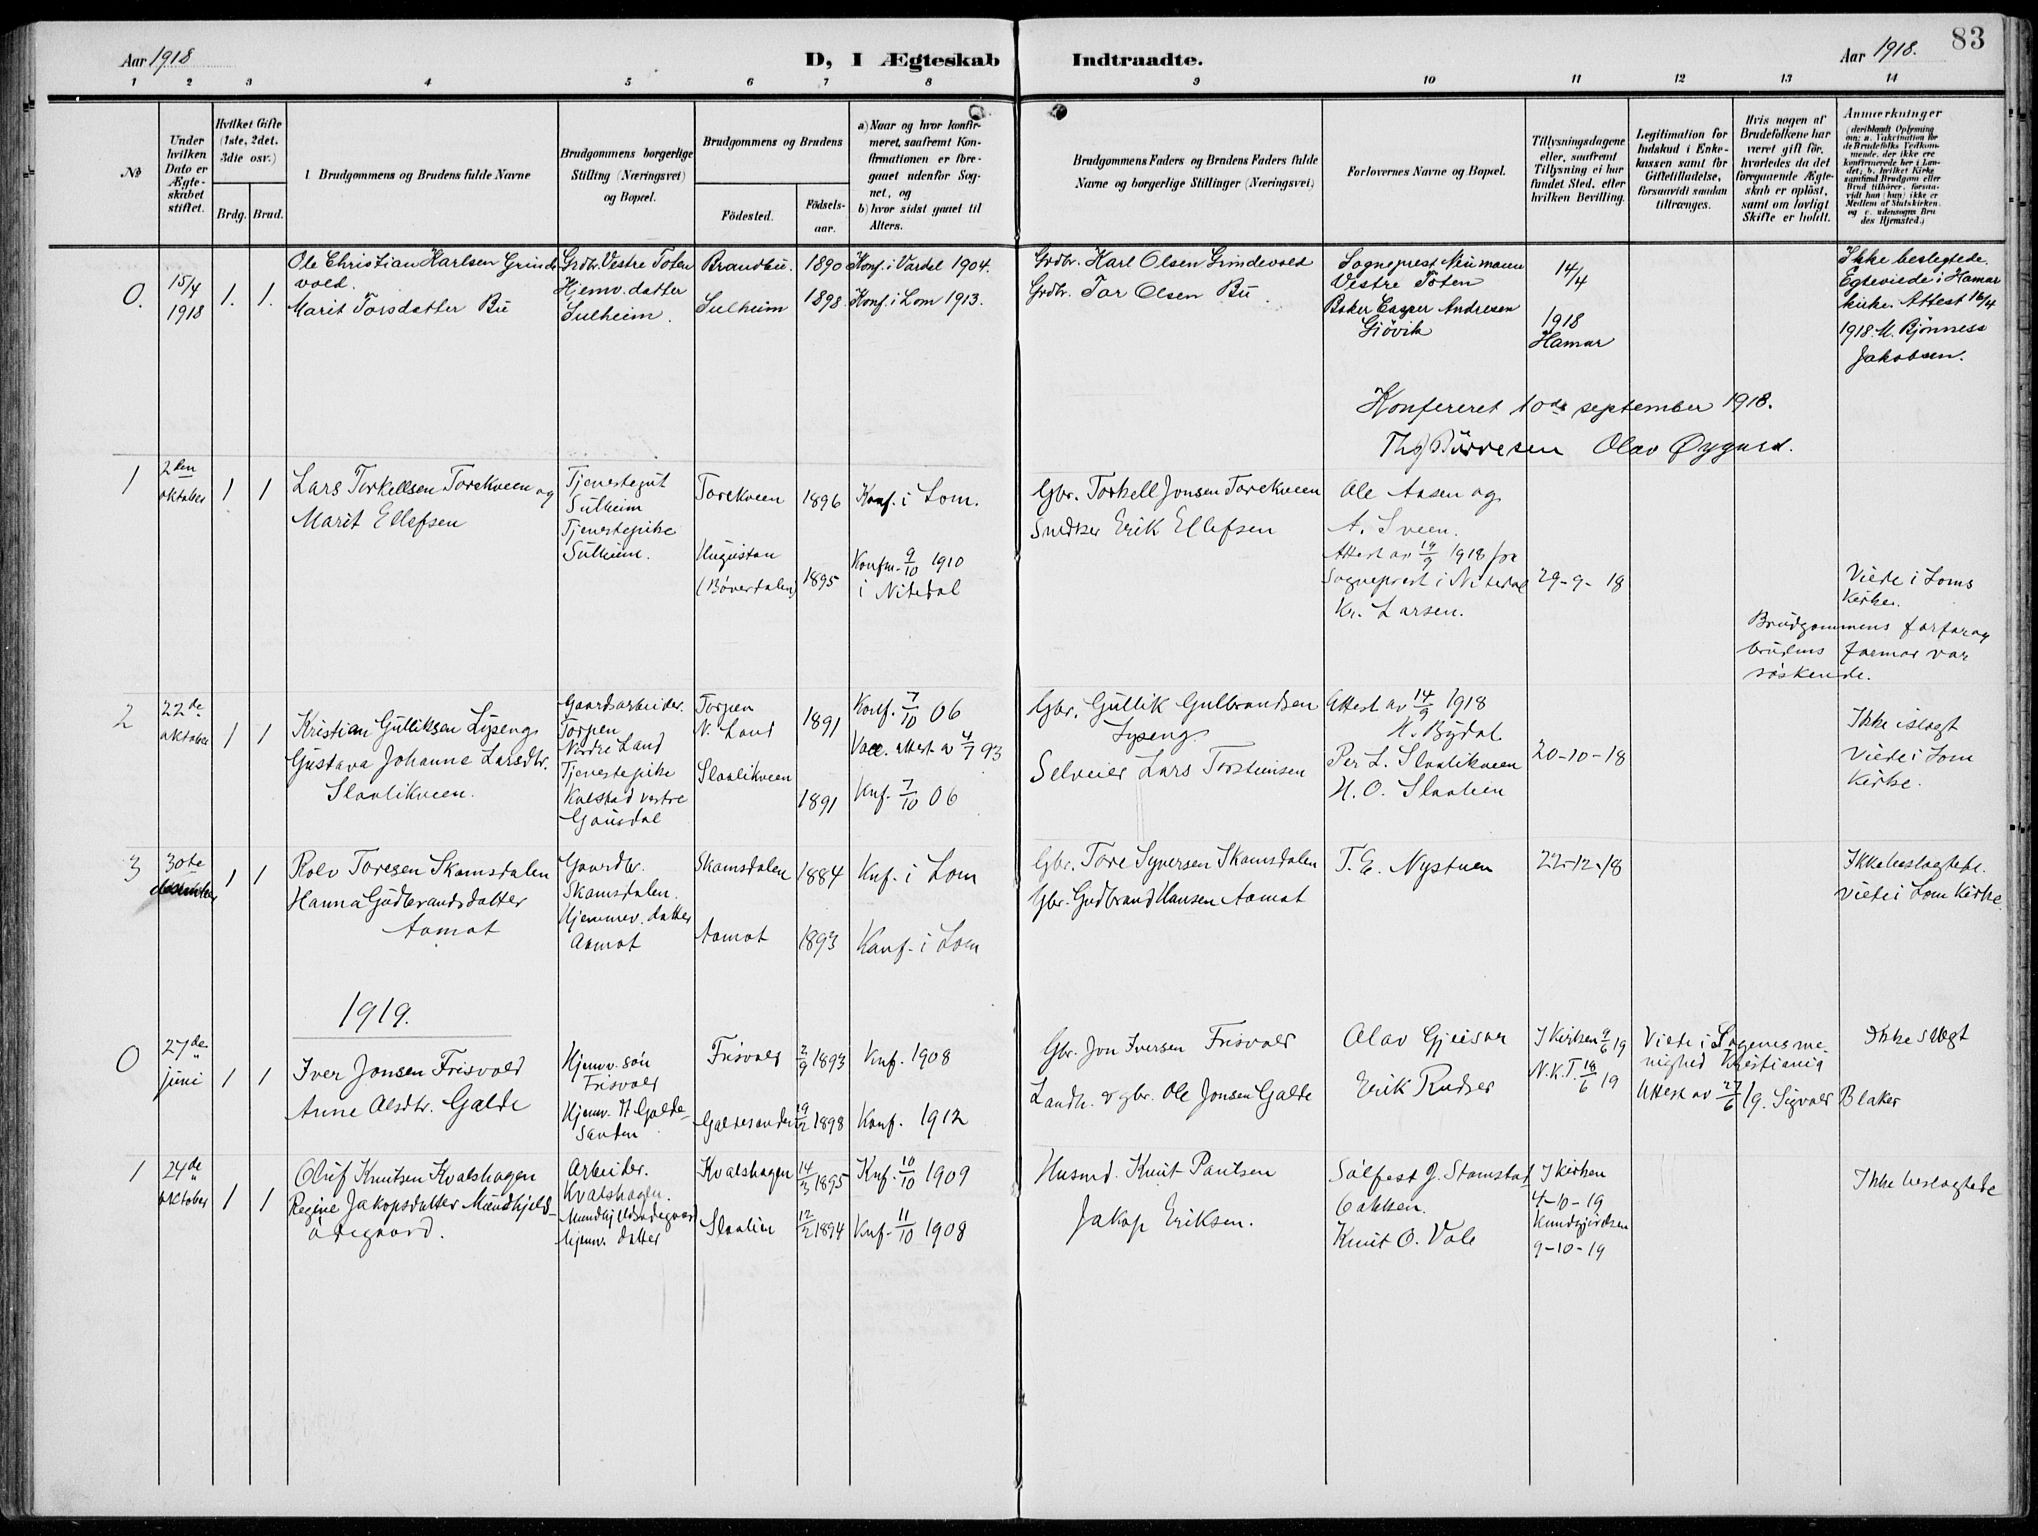 Aar 1918
D, I Ægteskab
Indtraadte.
Aar 1918.
83
1 2 3 4 5 6 7 8 9 10 11 12 13 14
No
Under hvilken Dato er Ægteskabet stiftet.
Hvilket Gifte (1ste, 2det, 3die osv.)
Brdg. Brud.
Brudgommens og Brudens fulde Navne
Brudgommens borgerlige Stilling (Næringsvei) og Bopæl.
Brudgommens og Brudens
Födested.
Födselsaar.
a) Naar og hvor konfirmeret, saafremt Konfirmationen er foregaaet udenfor Sognet, og
b) hvor sidst gaaet til Alters.
Brudgommens Faders og Brudens Faders fulde Navne og borgerlige Stillinger (Næringsvei)
Forlovernes Navne og Bopæl.
Tillysningsdagene eller, saafremt Tillysning ei har fundet Sted, efter hvilken Bevilling.
Legitimation for Indskud i Enkekassen samt for Giftetilladelse, forsaavidt saadan tiltrænges.
Hvis nogen af Brudefolkene har været gift för, hvorledes da det foregaaende Ægteskab er oplöst, samt om lovligt Skifte er holdt.
Anmerkninger
0. 15/4 1918 1. 1.
Ole Christian Karlsen Grindevold.
Marit Torsdatter Bu
Grdbr. Vestre Toten
Hjemv. datter
Sulheim.
Brandbu. 1890 Konf. i Vardal 1904.
Sulheim 1898. Konf. i Lom 1913.
Grdbr. Karl Olsen Grindevold
Grdbr. Tor Olsen Bu
Sogneprest Neumann
Vestre Toten
Baker Casper Andresen
Gjövik
14/4
1918
Hamar
Ikke beslegtede.
Egteviede i Hamar
kirke. Attest 16/4
1918. M. Bjönness
Jakobsen.
Konfereret 10de september 1918.
Olav Øygard.
1 2den oktober 1 1
Lars Torkellsen Torekveen og
Marit Ellefsen
Tjenestegut
Sulheim
Tjenestepike
Sulheim.
Torekveen 1896 Konf. i Lom.
(Bøverdalen) 1895
Konfm. 9/10 1910
i Nitedal
Gbr. Torkell Jonsen Torekveen
Snedker Erik Ellefsen
Ole Aasen og
A. Sveen.
Attest av 19/9 1918 fra
Sogneprest i Nitedal
Kr. Larsen.
29-9-18
Viede i Loms
Kirke.
Brudgommens farfar og
brudens farmor var
søskende.
2 22de oktober 1 1
Kristian Gulliksen Lyseng
Gustava Johanne Larsdtr.
Slaalikveen.
Gaardsarbeider.
Torpen
Nordre Land
Tjenestepike
Kolstad vestre
Gausdal
Torpen
N. Land 1891
Slaalikveen 1891
Konf. 7/10 06
Vacc. attest av 4/7 93
Knf. 7/10 06
Gbr. Gullik Gulbrandsen
Lyseng.
Selveier Lars Torsteinsen
Attest av 14/9 1918
H. Bydal
Per L. Slaalikveen
H. O. Slaalien
20-10-18
Ikke i slagt
Viede i Lom
Kirke.
3 30te desember 1 1
Rolv Toresen Skamsdalen
Hanna Gudbrandsdatter
Aamot
Gaardbr.
Skamsdalen.
Hjemmev. datter
Aamot
Skamsdalen 1884 Knf. i Lom
Aamot 1893 Konf. i Lom
Gbr. Tore Syversen Skamsdalen
Gbr. Gudbrand Hansen Aamot
T. E. Nystuen
22-12-18
Ikke beslagtede.
Viede i Lom Kirke.
1919.
0 27de juni 1 1
Iver Jonsen Frisvold
Anne Olsdtr. Galde
Hjemv. søn
Frisvold
Hjemv. D. Galdesanden
Frisvold 2/9 1893 Knf. 1908
Galdesanden 19/2 1898 Konf. 1912
Gbr. Jon Iversen Frisvold
Landh. & gbr. Ole Jonsen Galde
Olav Gjeisar
Erik Rudser
I Kirken 9/6 19
N.K.T. 18/6 19
Viede i Sagenes menighed Kristiania
Attest av 27/6 19. Sigvald Blaker
Ikke slegt
1 24de oktober 1 1
Oluf Knutsen Kvalshagen
Regine Jakopsdatter Mundhjeldödegaard.
Arbeider.
Kvalshagen.
Mundhjeldödegaard
hjemv. datter
Kvalshagen 14/3 1895 Knf. 10/10 1909
Slaalien 12/2 1894 Knf. 11/10 1908
Husmd. Knut Paulsen
Jakop Eriksen.
Sölfest J. Stamstad
Bakken.
Knut O. Vole
I kirken
4-10-19
Kundgjørelsen
9-10-19
Ikke beslagtede